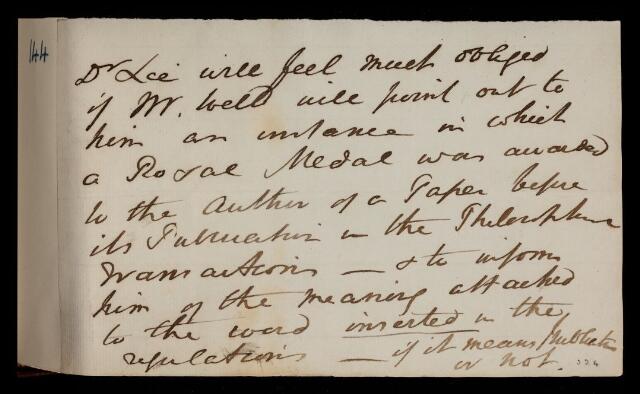 144
Dr Lee will feel much obliged
if Mr. Weld will point out to
him an instance in which
a Royal Medal was awarded
to the Author of a Paper before
its Publication in the Philosophical
Transactions — & to inform
him of the meaning attached
to the word inserted in the
regulations — if it means Publication
or not.